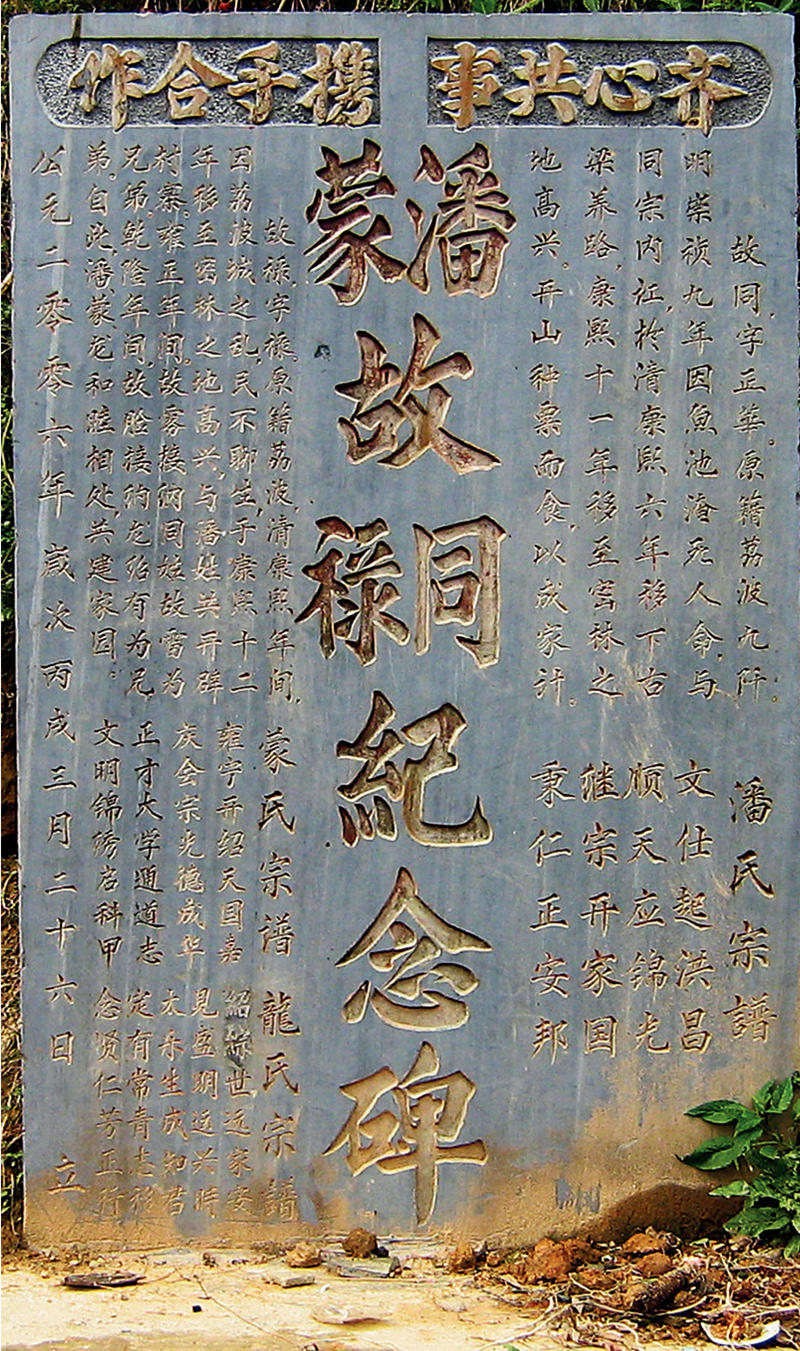 齐心共事 携手合作
故同,字正華。原籍荔波九阡。
明崇祯九年因魚池淹死人命,与
同宗内讧,於清康熙六年移下古
梁养路,康熙十一年移至密林之
地高兴。开山种粟而食,以成家计。
潘氏宗譜
文仕起洪昌
顺天应锦光
继宗开家国
秉仁正安邦
潘蒙故同禄紀念碑
故禄,字禄。原籍荔波,清康熙年间,
因荔波城之乱,民不聊生,于康熙十二
年移至密林之地高兴,与潘姓共开辟
村寨。雍正年间,故雾接纳同姓故雷为
兄弟。乾隆年间,故脸接纳龙弘有为兄
弟。自此,潘、蒙、龙和睦相处,共建家园。
蒙氏宗谱
雍宁开绍天国嘉
庆会宗光德成华
正才大学通道志
文明锦绣启科甲
龍氏宗譜
紹世远家安
見盛明远兴時
太生成知君
定有常青志移
念贤仁芳正行
公元二零零六年歲次丙戌三月二十六日 立